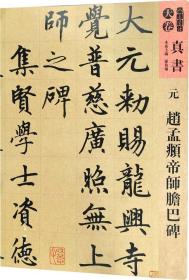 大元敕賜龍興寺
覺普慈廣照無上
帝師之碑
集賢學士資德
大卷
真書
元
趙孟頫帝師膽巴碑